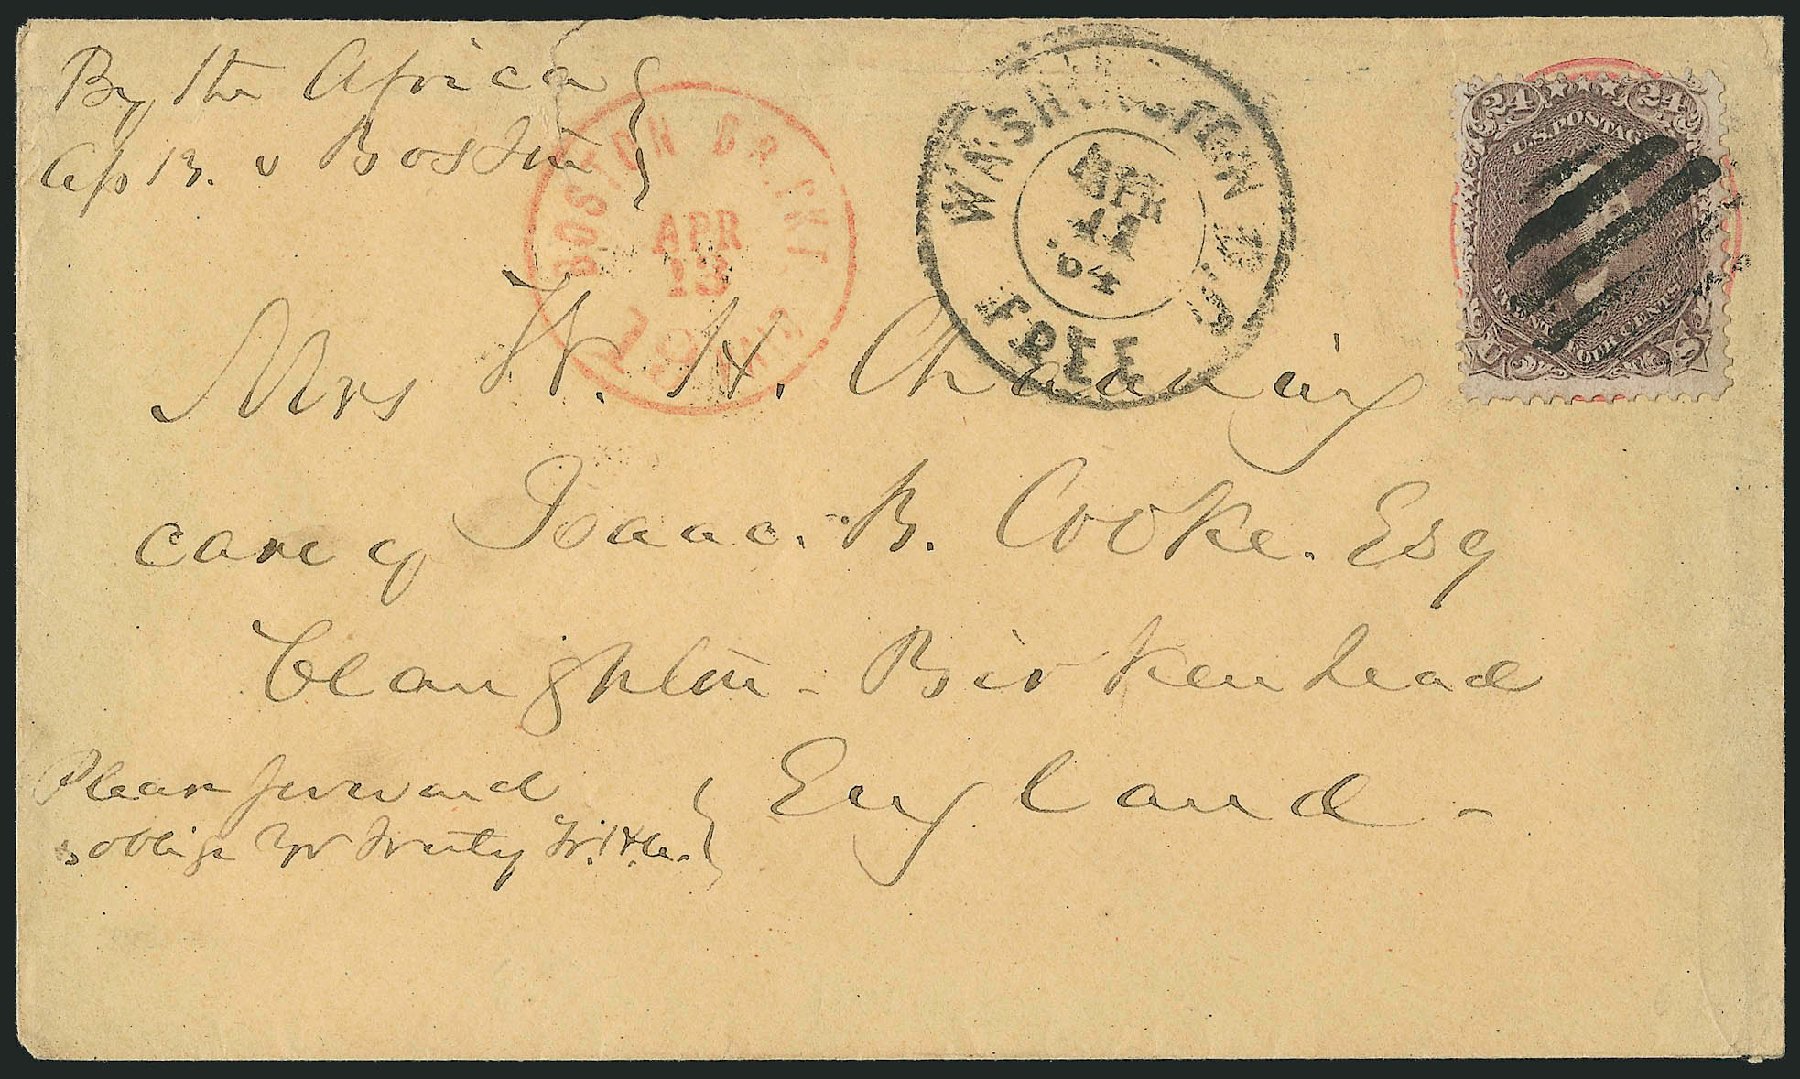 By the Africa
Ap 13. v Boston
BOSTON BR. PKT
APR
13
19 PAID
WASHINGTON D.C.
APR
11
'64
FREE
24 24
U.S. POSTAGE
U S
Mrs W. H. Channing
care of Isaac. B. Cooke. Esq
Claughton - Birkenhead
England -
Please forward
& oblige Yr truly W. H. C.